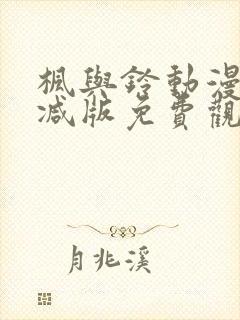 楓與鈴動漫
減版免費觀
月兆溪